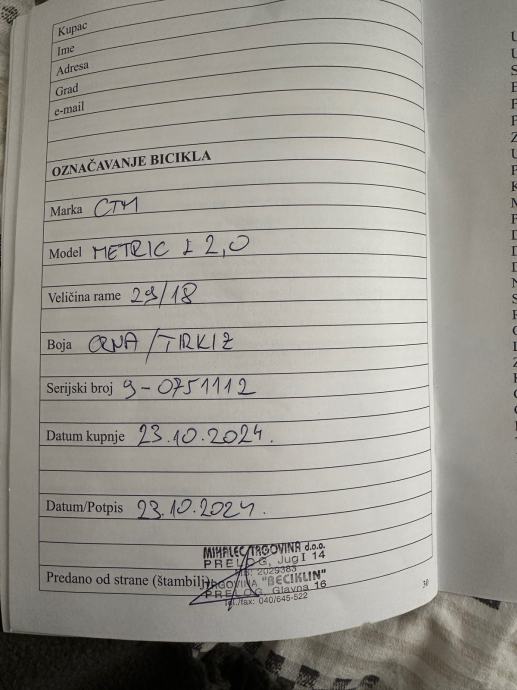 Kupac
Ime
Adresa
Grad
e-mail
OZNAČAVANJE BICIKLA
Marka CTM
Model METRIC £ 2,0
Veličina rame 29/18
Boja CRNA/TIRKIZ
Serijski broj 9-0751112
Datum kupnje 23.10.2024.
Datum/Potpis 23.10.2024.
MIHALEC TRGOVINA d.o.o.
PRELOG, Jug I 14
MB: 2029383
Predano od strane (štambilj)
TRGOVINA "BECIKLIN"
PRELOG, Glavna 16
Tel./fax: 040/645-522
30
U
U
S